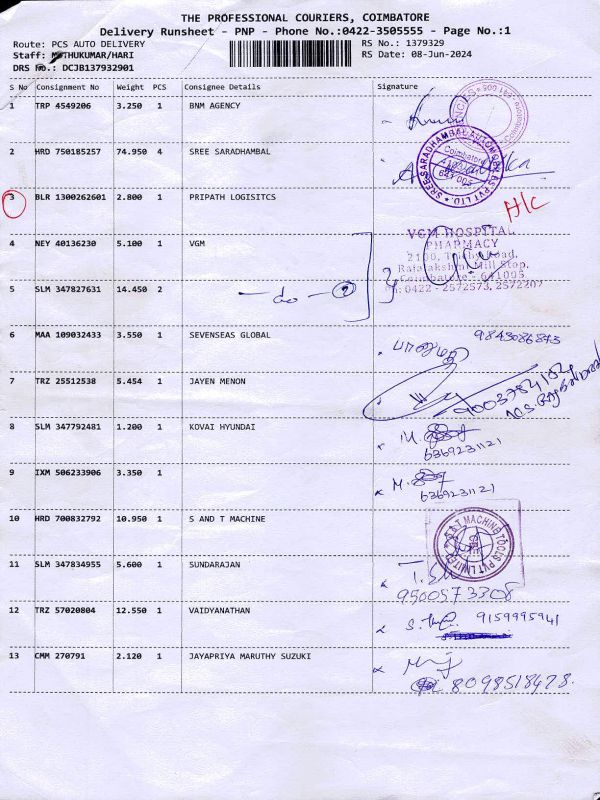 THE PROFESSIONAL COURIERS, COIMBATORE
Delivery Runsheet - PNP - Phone No.:0422-3505555 - Page No.:1
Route: PCS AUTO DELIVERY RS No.: 1379329
Staff: MUTHUKUMAR/HARI RS Date: 08-Jun-2024
DRS No.: DCJB137932901
S No Consignment No Weight PCS Consignee Details Signature
1 TRP 4549206 3.250 1 BNM AGENCY
2 HRD 750185257 74.950 4 SREE SARADHAMBAL
SREE SARADHAMBAL AUTOMOBILES PVT LTD.
Coimbatore
3 BLR 1300262601 2.800 1 PRIPATH LOGISITCS H/C
4 NEY 40136230 5.100 1 VGM
VGM HOSPITAL
PHARMACY
2100, Trichy Road,
Rajalakshmi Mill Stop,
Coimbatore - 641005
Ph: 0422 - 2572573, 2572207
5 SLM 347827631 14.450 2 - do - 2
6 MAA 109032433 3.550 1 SEVENSEAS GLOBAL 9843086873
7 TRZ 25512538 5.454 1 JAYEN MENON
8 SLM 347792481 1.200 1 KOVAI HYUNDAI
6369231121
9 IXM 506233906 3.350 1
6369231121
10 HRD 700832792 10.950 1 S AND T MACHINE
S&T MACHINE TOOLS PVT LIMITED
11 SLM 347834955 5.600 1 SUNDARAJAN
9500573308
12 TRZ 57020804 12.550 1 VAIDYANATHAN 9159995941
13 CMM 270791 2.120 1 JAYAPRIYA MARUTHY SUZUKI
8098518478